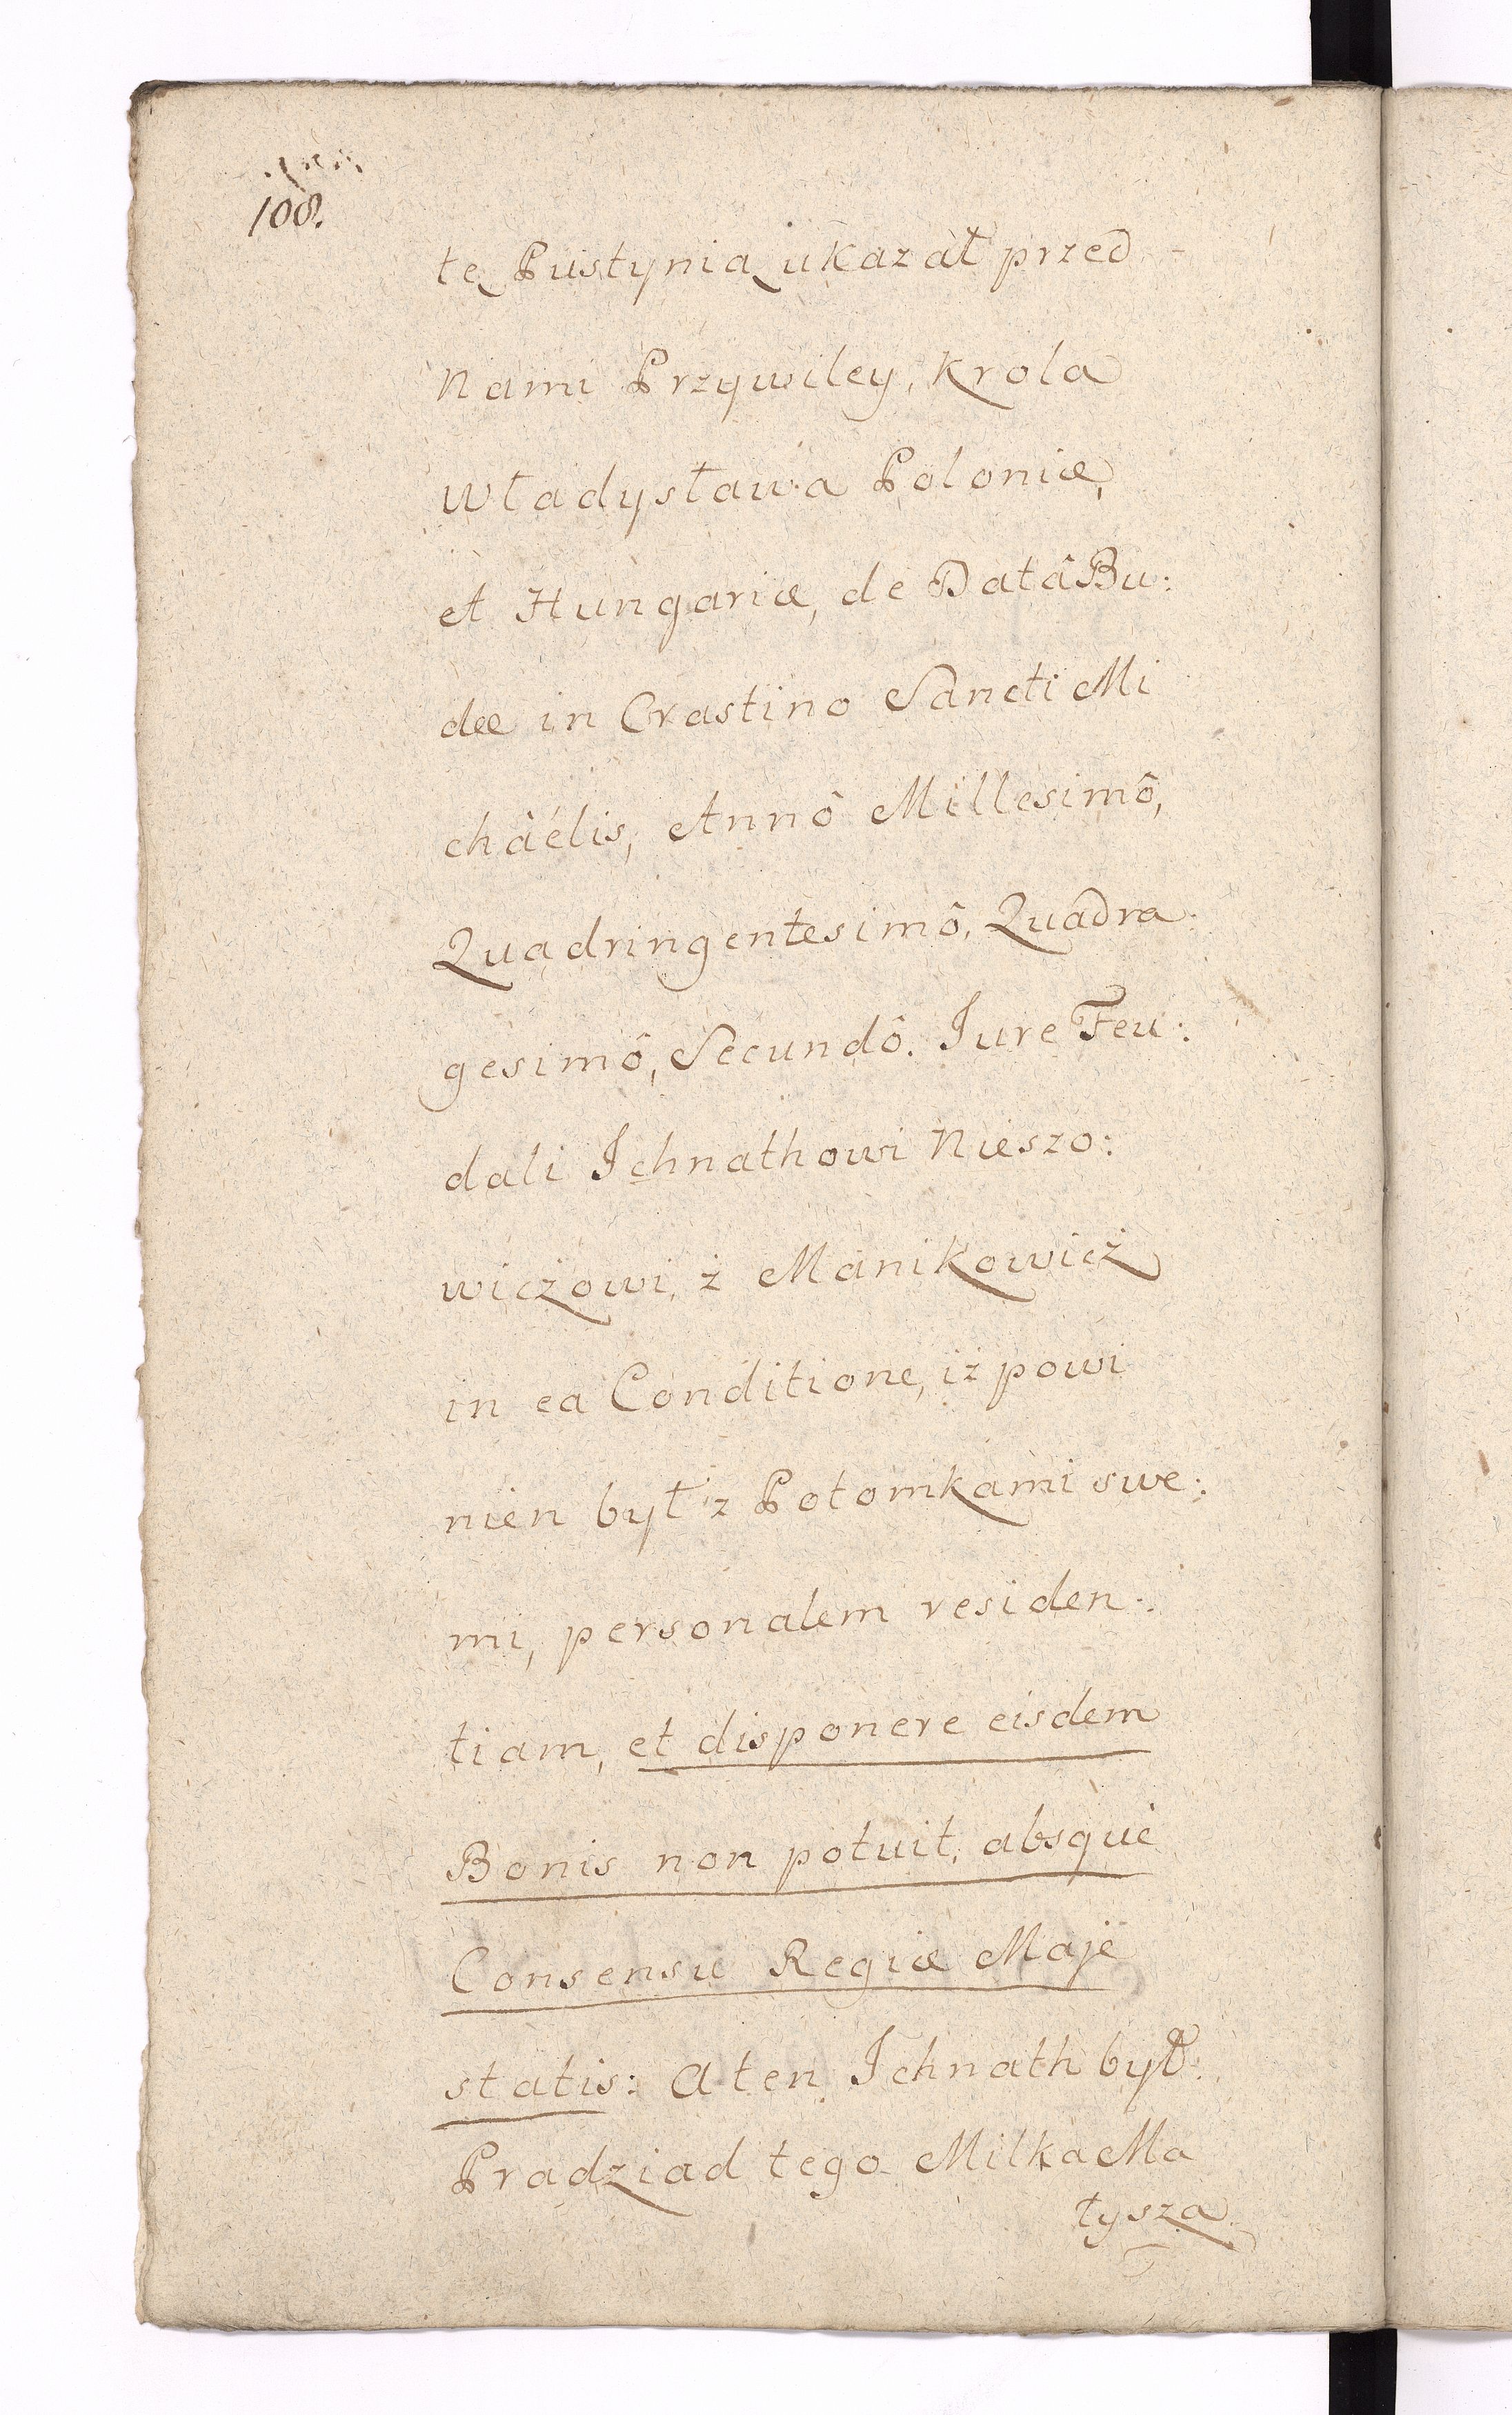 108.
tę Pustynią ukazał przed
Nami Przywiley, Krola
Władysława Poloniæ,
et Hungariæ, de Datâ Bu:
dæ in Crastino Sancti Mi
châélis, Annô Millesimô,
Quadringentesimô, Quadra
gesimô, Secundô. Jure Feu:
dali Jchnathowi Nieszo:
wiczowi, z Manikowicz
in ea Conditione, iż powi
nien był z Potomkami swe:
mi, personalem residen:
tiam, et disponere eisdem
Bonis non potuit, absque
Consensu Regiæ Maje
statis: A ten Jchnath był
Pradziad tego Milka Ma
łysza